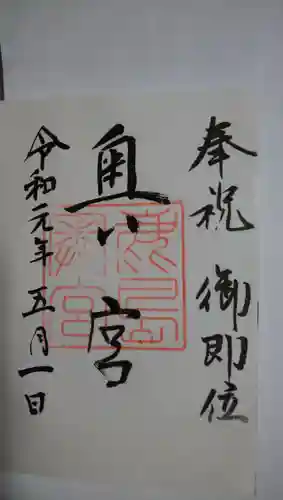 奉祝 御即位
奥八宮
令和元年 五月一日